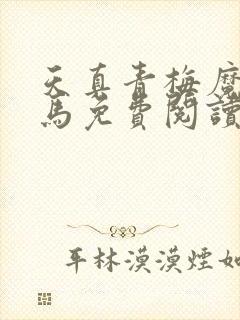 天真青梅魔
馬免費閱讀
平林漠漠煙如